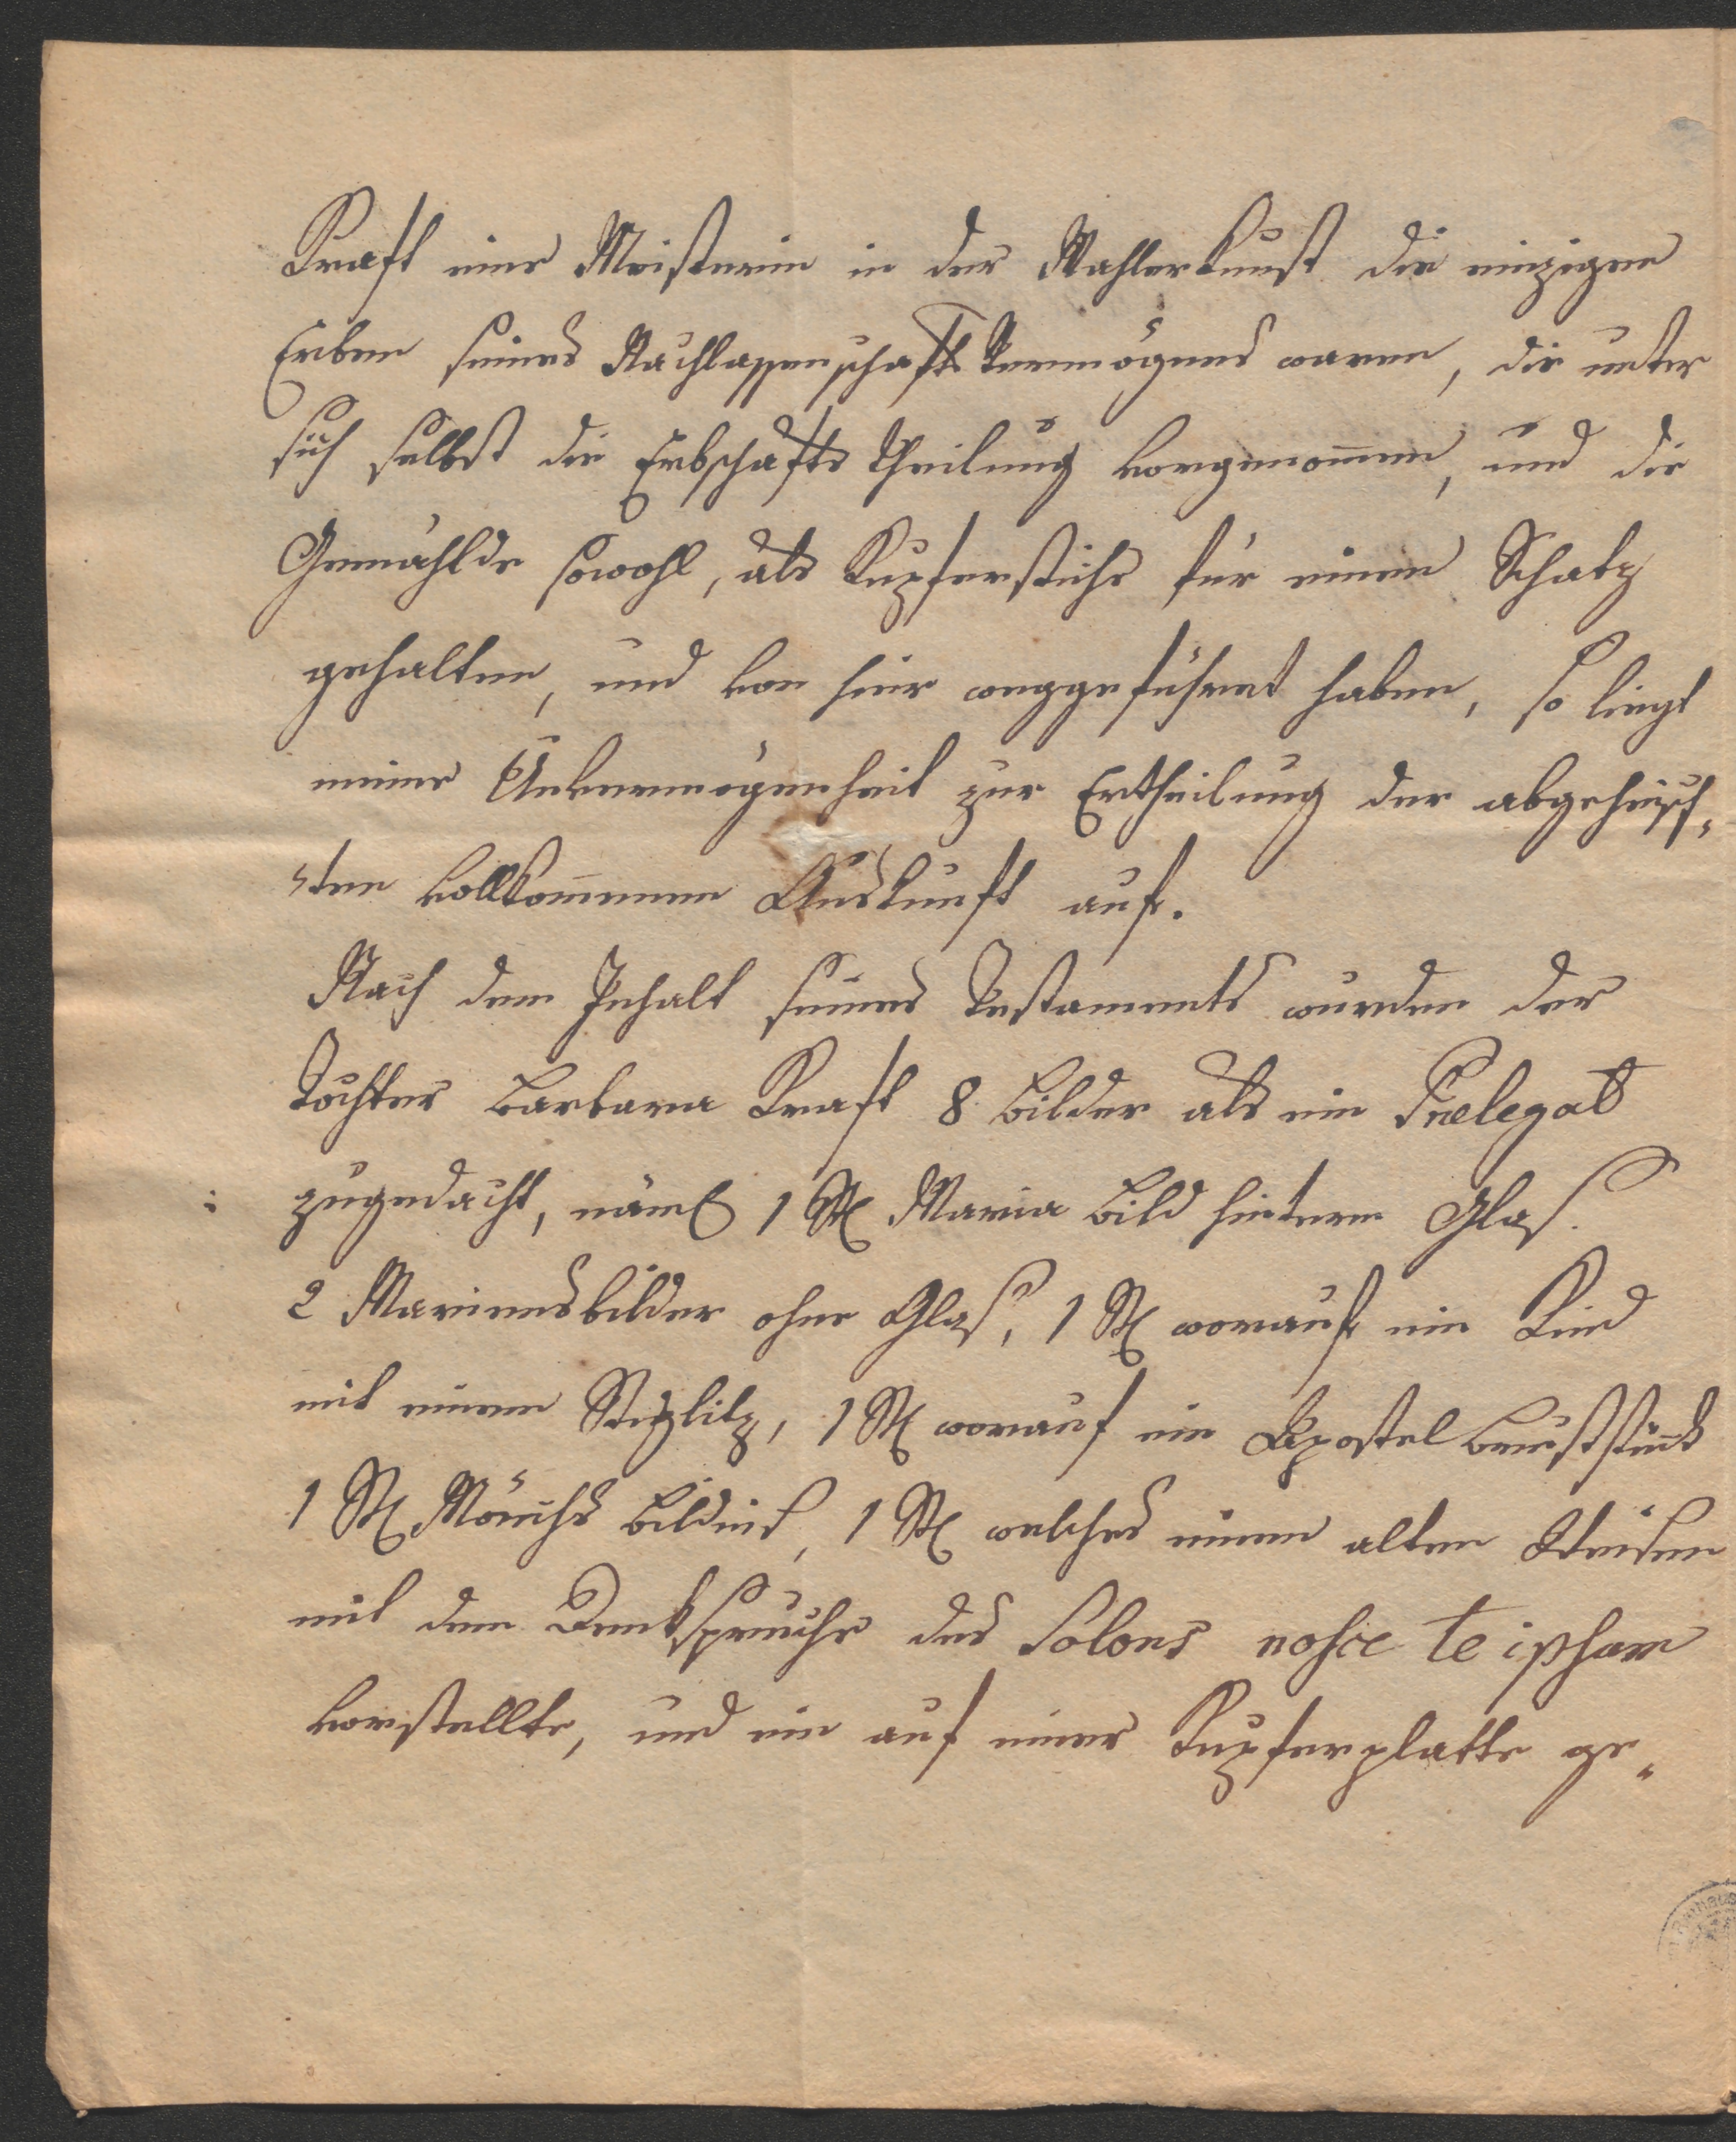 Kraft eine Meisterin in der Mahlerkunst die einzigen
Erben seines Nachlassenschafts Vermögens waren, die unter
sich selbst die Erbschafts Theilung vorgenom̅en, und die
Gemählde sowohl, als Kupferstiche für einen Schatz
gehalten, und von hier weggeführet haben, so liegt
meine Unvermögenheit zur Ertheilung der abgeheisch„
„ten vollkom̅enen Auskunft auf.
Nach dem Inhalt seines Testaments wurden der
Tochter Barbara Kraft 8 Bilder als ein Prælegat
zugedacht, näml 1 St Maria Bild hinterm Glas.
2 Mariensbilder ohne Glas, 1 St worauf ein Kind
mit einem Stiglitz, 1 St worauf ein Apostel Bruststück
1 St Mönchs Bildniß, 1 St welches einen alten Weisen
mit dem Denkspruche des Solons nosce te ipsum
vorstellte, und ein auf einer Kupferplatte ge„